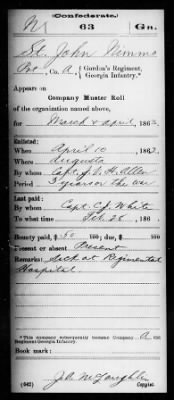 (Confederate.)
N 63 Gn.
St. John Nimmo
Pvt, Co. A, Gordon's Regiment,
Georgia Infantry.*
Appears on
Company Muster Roll
of the organization named above,
for March & April, 186
Enlisted:
When April 10, 186
Where Augusta
By whom Capt. J. V. H. Allen
Period 3 years or the war
Last paid:
By whom Capt. C. J. White
To what time Feb. 28, 186
Bounty paid $50 100; due $ 100
Present or absent Present
Remarks: Sick at Regimental
Hospital
*This company subsequently became Company A, 63d
Regiment Georgia Infantry.
Book mark:
(642) J. A. McLaughlin
Copyist.